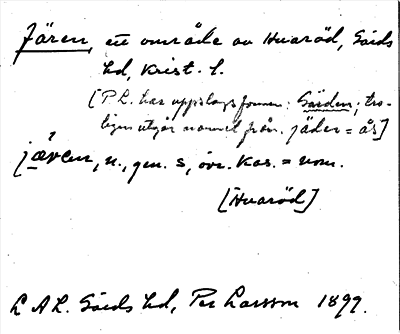 Jären, ett område av Huaröd, Gärds
hd, Krist. l.
[P L. har uppslagsformen: Gärden; tro-
ligen utgår namnet från jäder = ås]
jären, n., gen. s, övr. kas. = nom.
[Huaröd]
L A L. Gärds hd, Per Larsson 1899.